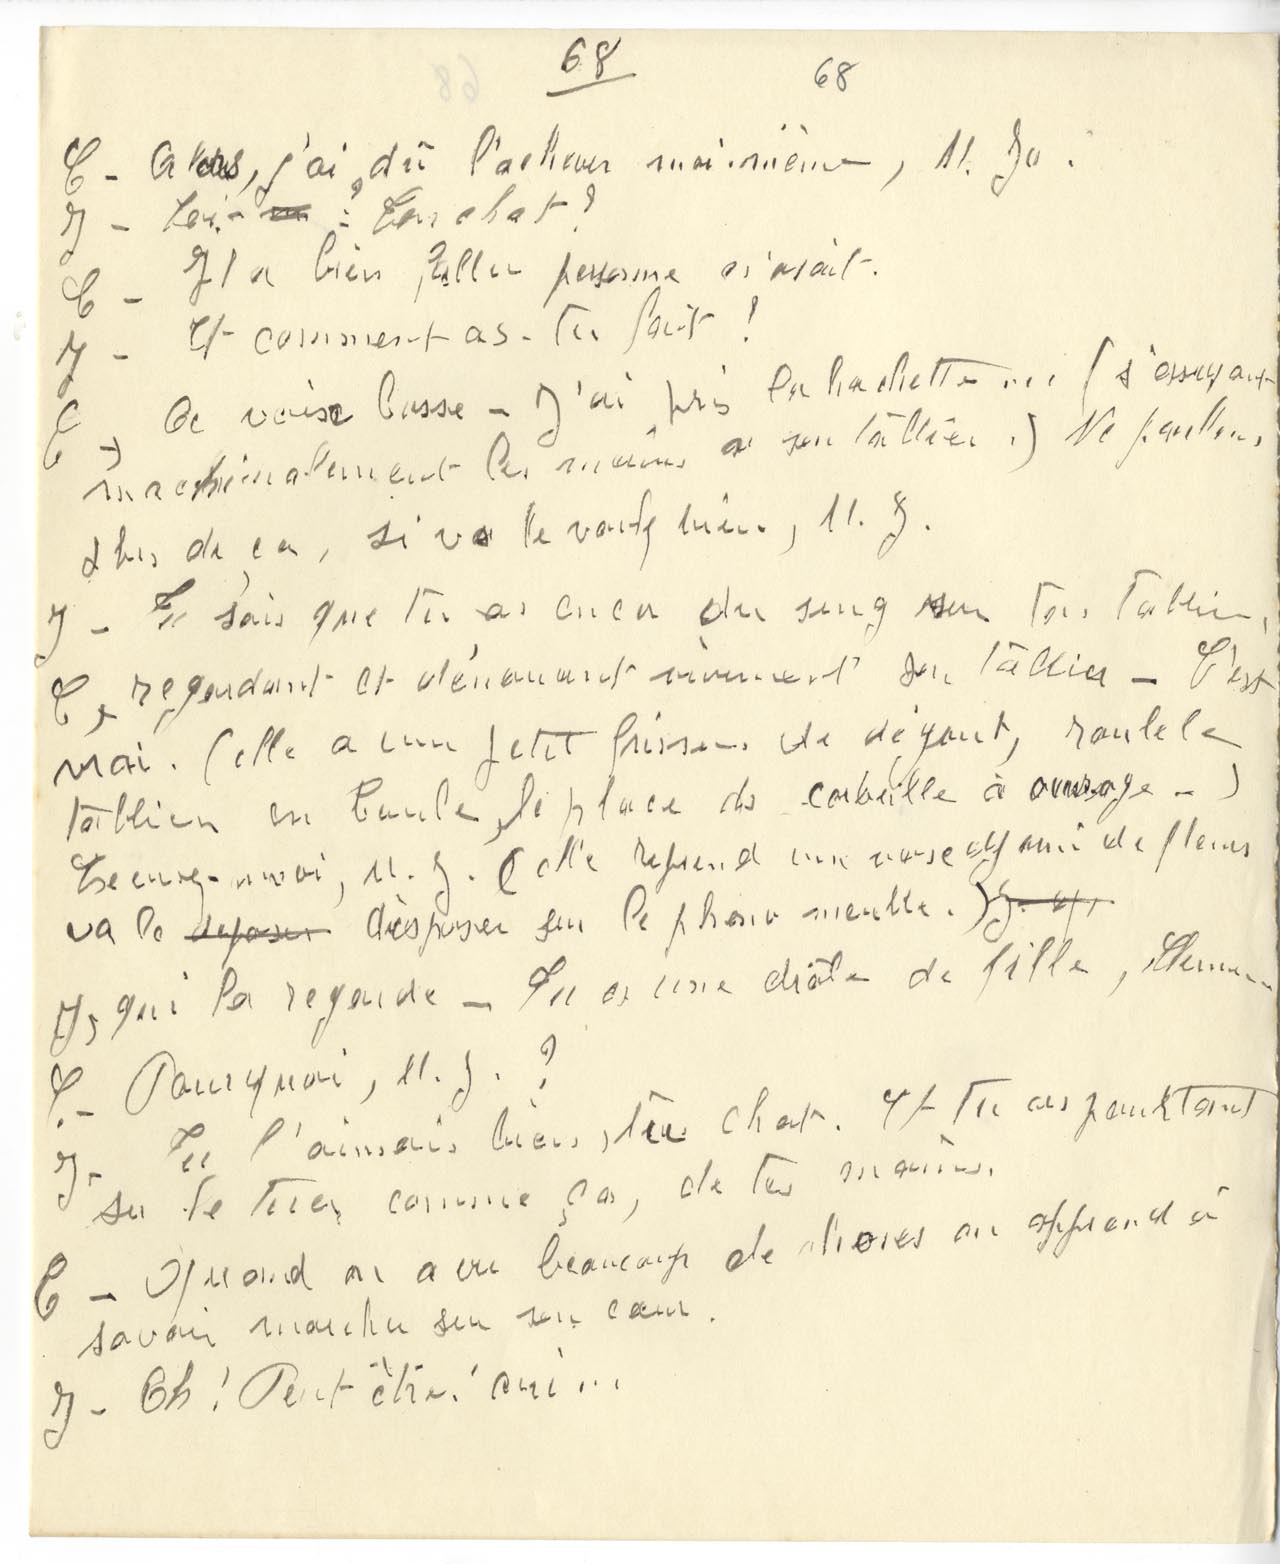 68 68
C - Alors, j'ai dû l'achever moi-même, M. Jo.
J - Toi - ? Ton chat ?
C - Il a bien fallu personne n'osait.
J - Et comment as-tu fait !
C, de voix basse - J'ai pris la hachette ... (s'essuyant
machinalement les mains à son tablier.) Ne parlons
plus de ça, si vs le voulez bien, M. J.
J - Tu sais que tu as encor du sang sur ton tablier.
C, regardant et dénouant vivement son tablier - C'est
vrai. (elle a un petit frisson de dégoût, roule le
tablier en boule, le place ds corbeille à ouvrage -)
Excusez-moi, M. J. (elle reprend un vase garni de fleurs
va le déposer disposer sur le piano meuble.)
J, qui la regarde - Tu es une drôle de fille,
C - Pourquoi, M. J. ?
J - Tu l'aimais bien, ton chat. Et tu as pourtant
su le tuer comme ça, de tes mains.
C - Quand on a vu beaucoup de choses on apprend à
savoir marcher sur son cœur.
J - Oh ! Peut être ! oui ...